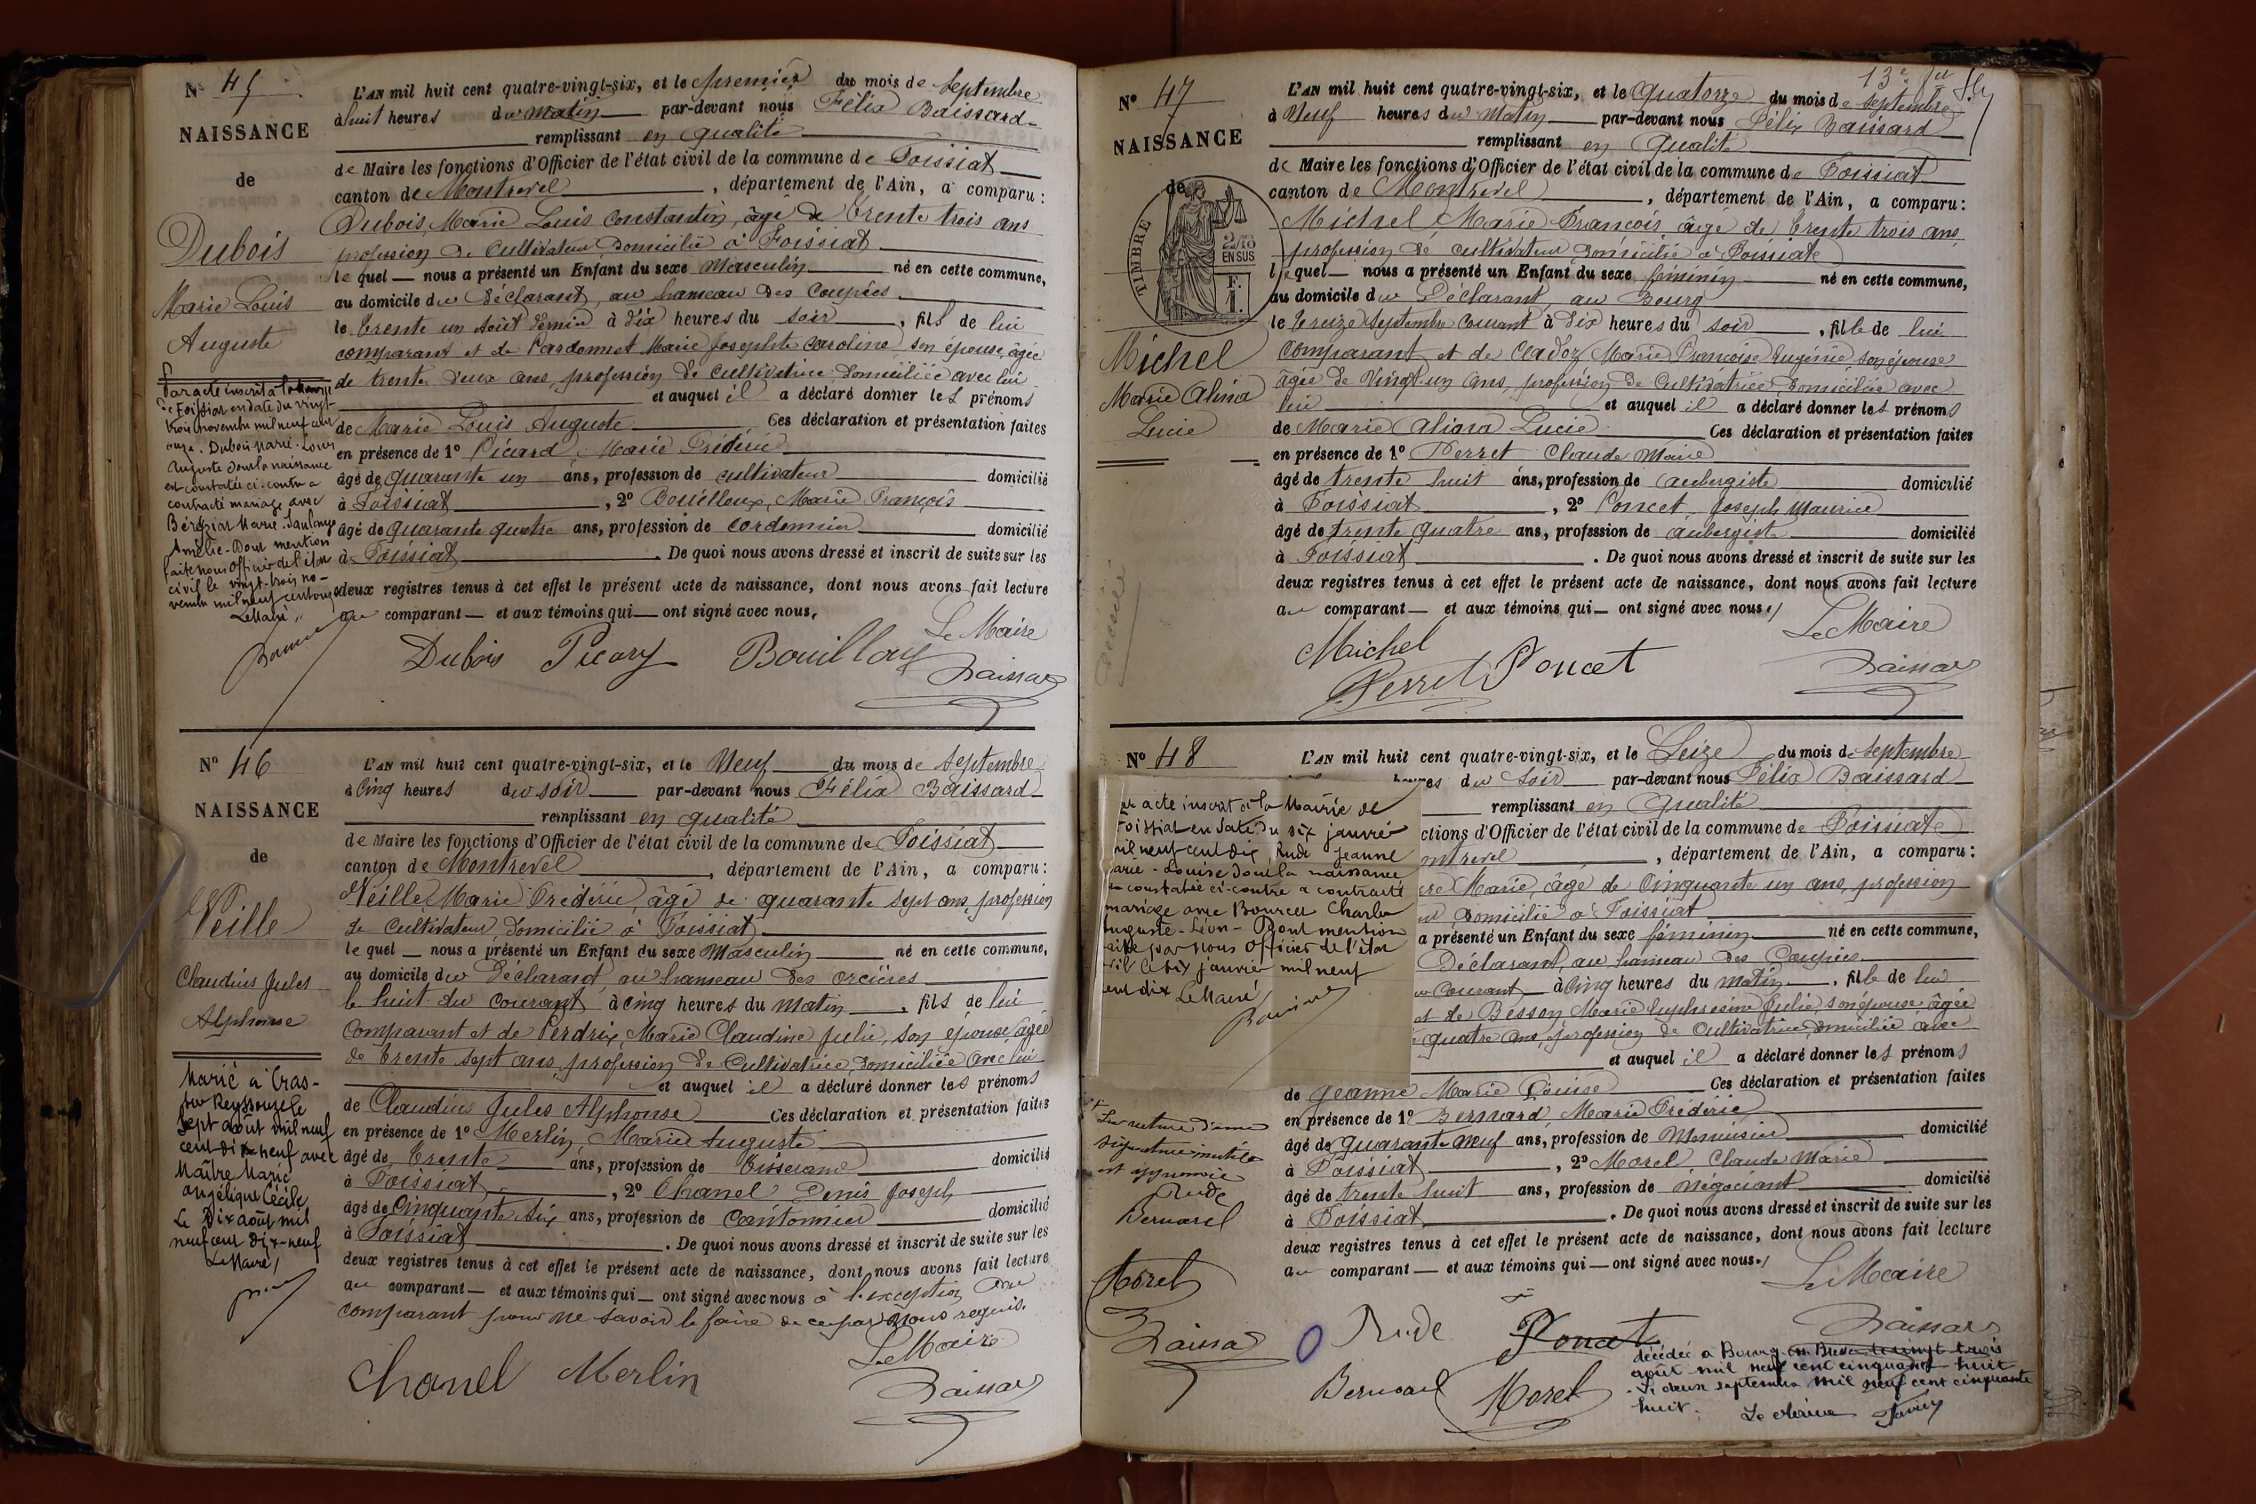 N° 45
NAISSANCE
de
Dubois
Marie Louis
Auguste
L'AN mil huit cent quatre-vingt-six, et le premier du mois de Septembre
à huit heures du matin par-devant nous Félix Baissard
remplissant en qualité
de Maire les fonctions d'Officier de l'état civil de la commune de Foissiat
canton de Montrevel, département de l'Ain, a comparu :
Dubois, Marie Louis Constantin, âgé de trente trois ans
profession de cultivateur domicilié à Foissiat
lequel nous a présenté un Enfant du sexe Masculin né en cette commune,
au domicile du Déclarant, au hameau des Coupées
le trente un Août dernier à dix heures du soir, fils de lui
comparant et de Pardonnet Marie Josephte Caroline son épouse, âgée
de trente deux ans, profession de cultivatrice domiciliée avec lui
et auquel il a déclaré donner les prénoms
de Marie Louis Auguste Ces déclaration et présentation faites
en présence de 1° Picard, Marie Frédéric
âgé de quarante un ans, profession de cultivateur domicilié
à Foissiat, 2° Bouilloux, Marie François
âgé de quarante quatre ans, profession de cordonnier domicilié
à Foissiat. De quoi nous avons dressé et inscrit de suite sur les
deux registres tenus à cet effet le présent acte de naissance, dont nous avons fait lecture
au comparant et aux témoins qui ont signé avec nous,
Le Maire
Dubois Picard Bouilloux Baissard
Par acte inscrit à la mairie
de Foissiat en date du vingt-
trois novembre mil neuf cent
onze. Dubois Marie-Louis
Auguste dont la naissance
est constatée ci-contre a
contracté mariage avec
Marie
Amélie - Dont mention
faite nous Officier de l'état
civil le vingt-trois no-
vembre mil neuf cent onze
Le Maire
N° 46
NAISSANCE
de
Neille
Claudius Jules
Alphonse
L'AN mil huit cent quatre-vingt-six, et le Neuf du mois de Septembre
à Cinq heures du soir par-devant nous Félix Baissard
remplissant en qualité
de Maire les fonctions d'Officier de l'état civil de la commune de Foissiat
canton de Montrevel, département de l'Ain, a comparu :
Neille, Marie Frédéric, âgé de quarante sept ans, profession
de cultivateur, domicilié à Foissiat
lequel nous a présenté un Enfant du sexe Masculin né en cette commune,
au domicile du Déclarant, au hameau des Orcières
le huit du courant à cinq heures du matin, fils de lui
Comparant et de Perdrix, Marie Claudine Julie, son épouse, âgée
de trente sept ans, profession de Cultivatrice, domiciliée avec lui
et auquel il a déclaré donner les prénoms
de Claudius Jules Alphonse Ces déclaration et présentation faites
en présence de 1° Merlin, Marie Auguste
âgé de trente ans, profession de Tisserand domicilié
à Foissiat, 2° Chanel Denis Joseph
âgé de Cinquante six ans, profession de Cantonnier domicilié
à Foissiat. De quoi nous avons dressé et inscrit de suite sur les
deux registres tenus à cet effet le présent acte de naissance, dont nous avons fait lecture
au comparant et aux témoins qui ont signé avec nous à l'exception du
comparant pour ne savoir le faire de ce par nous requis.
Le Maire
Chanel Merlin Baissard
Marié à Cras-
sur Reyssouze le
sept août mil neuf
cent dix neuf avec
Maître Marie
Angélique Cécile
Le Dix août mil
neuf cent dix-neuf
Le Maire,
N° 47
NAISSANCE
de
TIMBRE
2/10 EN SUS
F. 1.
Michel
Marie Alina
Lucie
L'AN mil huit cent quatre-vingt-six, et le Quatorze du mois de Septembre
à Neuf heures du Matin par-devant nous Félix Baissard
remplissant en Qualité
de Maire les fonctions d'Officier de l'état civil de la commune de Foissiat
canton de Montrevel, département de l'Ain, a comparu :
Michel, Marie François, âgé de trente trois ans,
profession de cultivateur domicilié à Foissiat
lequel nous a présenté un Enfant du sexe féminin né en cette commune,
au domicile du Déclarant, au Bourg
le treize Septembre Courant à Dix heures du soir, fille de lui
Comparant et de Marie Françoise Eugénie, son épouse
âgée de Vingt-un ans, profession de Cultivatrice domiciliée avec
lui et auquel il a déclaré donner les prénoms
de Marie Alina Lucie Ces déclaration et présentation faites
en présence de 1° Perret Claude Marie
âgé de trente huit ans, profession de aubergiste domicilié
à Foissiat, 2° Poncet, Joseph Maurice
âgé de trente quatre ans, profession de aubergiste domicilié
à Foissiat. De quoi nous avons dressé et inscrit de suite sur les
deux registres tenus à cet effet le présent acte de naissance, dont nous avons fait lecture
au comparant et aux témoins qui ont signé avec nous,
Le Maire
Michel
Perret Poncet Baissard
N° 48
L'AN mil huit cent quatre-vingt-six, et le Seize du mois de Septembre
heures du Soir par-devant nous Félix Baissard
remplissant en Qualité
ctions d'Officier de l'état civil de la commune de Foissiat
ontrevel, département de l'Ain, a comparu :
Marie, âgé de Cinquante un ans, profession
domicilié à Foissiat
a présenté un Enfant du sexe féminin né en cette commune,
Déclarant, au hameau des Coupées
Courant à Cinq heures du matin, fille de lui
et de Besson Marie Euphrosine Julie, son épouse, âgée
quatre ans, profession de Cultivatrice, domiciliée avec
et auquel il a déclaré donner les prénoms
de Jeanne Marie Louise Ces déclaration et présentation faites
en présence de 1° Bernard, Marie Frédéric
âgé de quarante neuf ans, profession de Menuisier domicilié
à Foissiat, 2° Morel, Claude Marie
âgé de trente huit ans, profession de négociant domicilié
à Foissiat. De quoi nous avons dressé et inscrit de suite sur les
deux registres tenus à cet effet le présent acte de naissance, dont nous avons fait lecture
au comparant et aux témoins qui ont signé avec nous,
Le Maire
Rude Poncet Baissard
Bernard Morel
ar acte inscrit à la Mairie de
Foissiat en date du six janvier
mil neuf cent dix, Rude Jeanne
Marie - Louise dont la naissance
est constatée ci-contre a contracté
mariage avec Bourcet Charles
Auguste - Léon - Dont mention
faite par nous Officier de l'état
civil le six janvier mil neuf
cent dix Le Maire
La rature d'une
signature inutile
est approuvée
Rude
Bernard
Morel
Baissard
décédée à Bourg en Bresse le vingt trois
août mil neuf cent cinquante huit
Le deux septembre mil neuf cent cinquante
huit. Le Maire